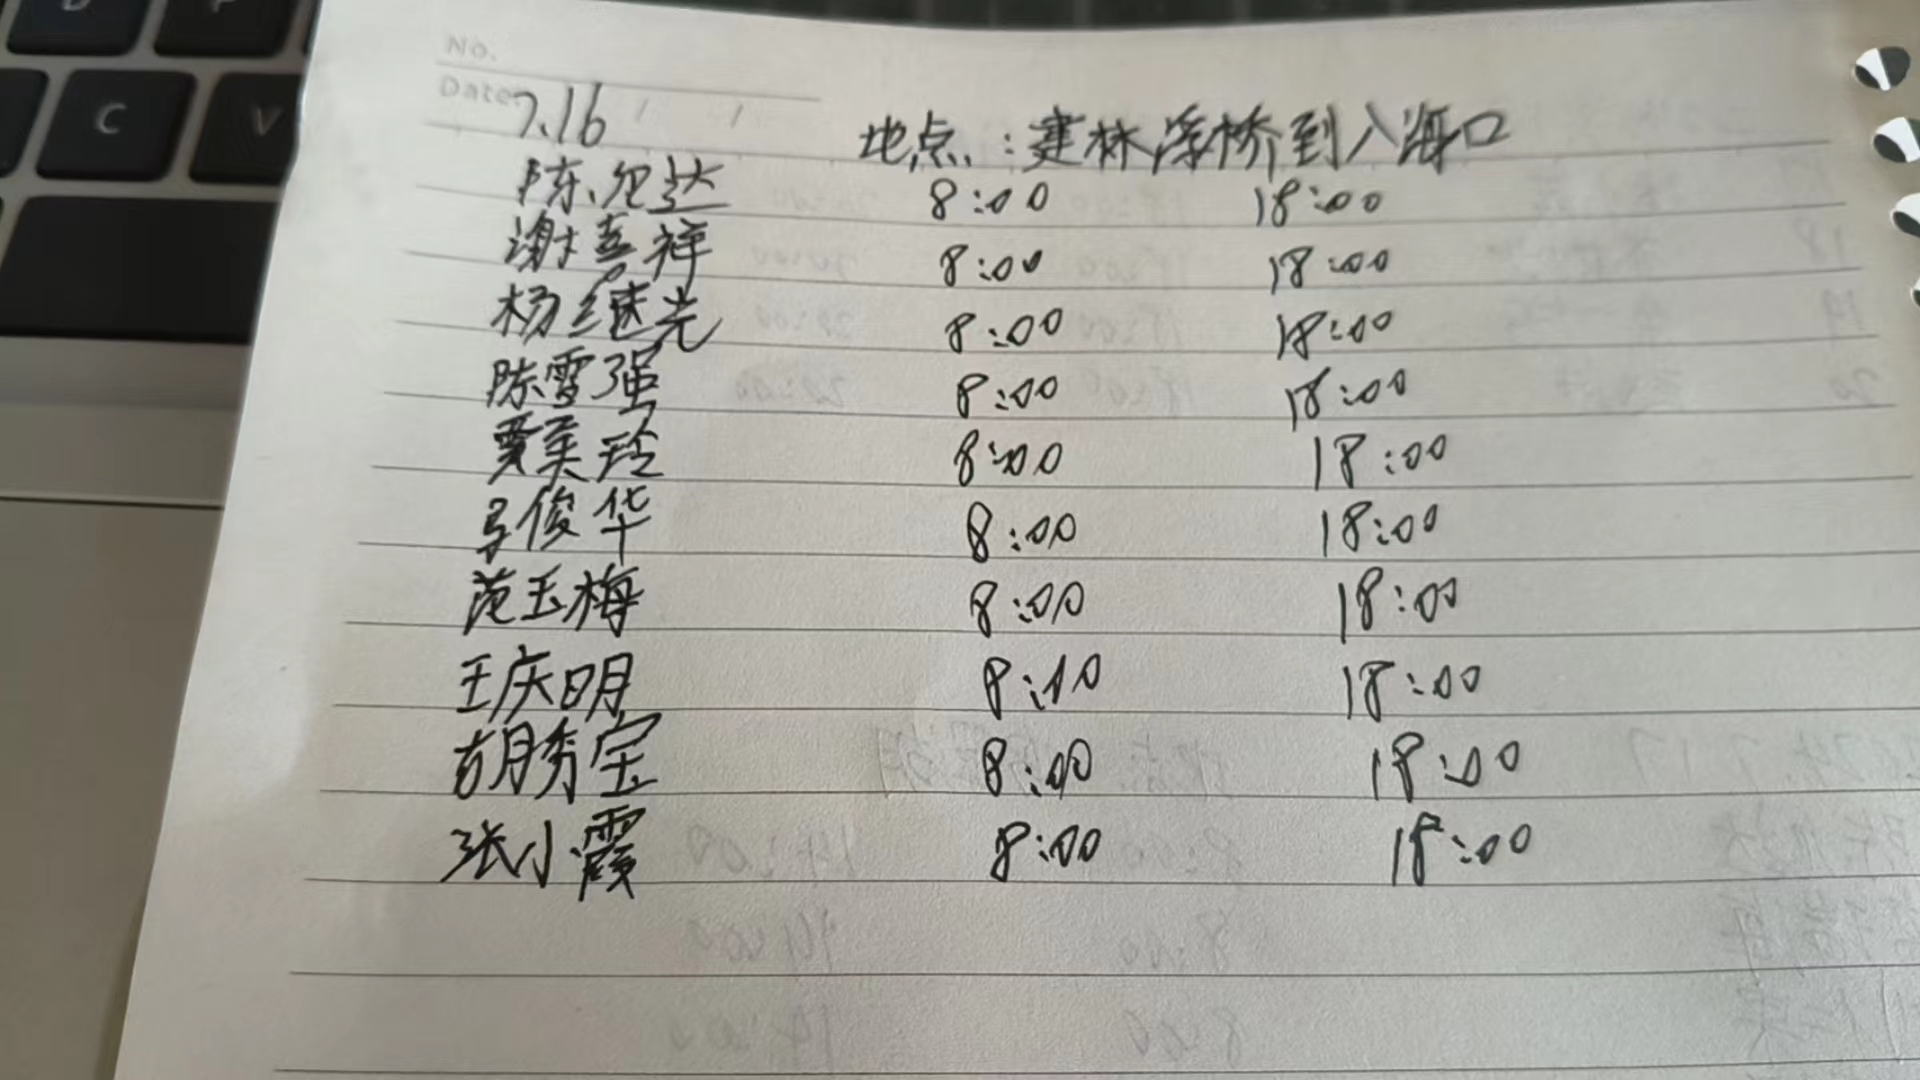 No.
Date 7.16
地点:建林浮桥到入海口
陈允达 8:00 18:00
谢喜祥 8:00 18:00
杨继光 8:00 18:00
陈雪强 8:00 18:00
贾美玲 8:00 18:00
马俊华 8:00 18:00
范玉梅 8:00 18:00
王庆明 8:10 18:00
胡秀宝 8:00 18:00
张小霞 8:00 18:00
C
V